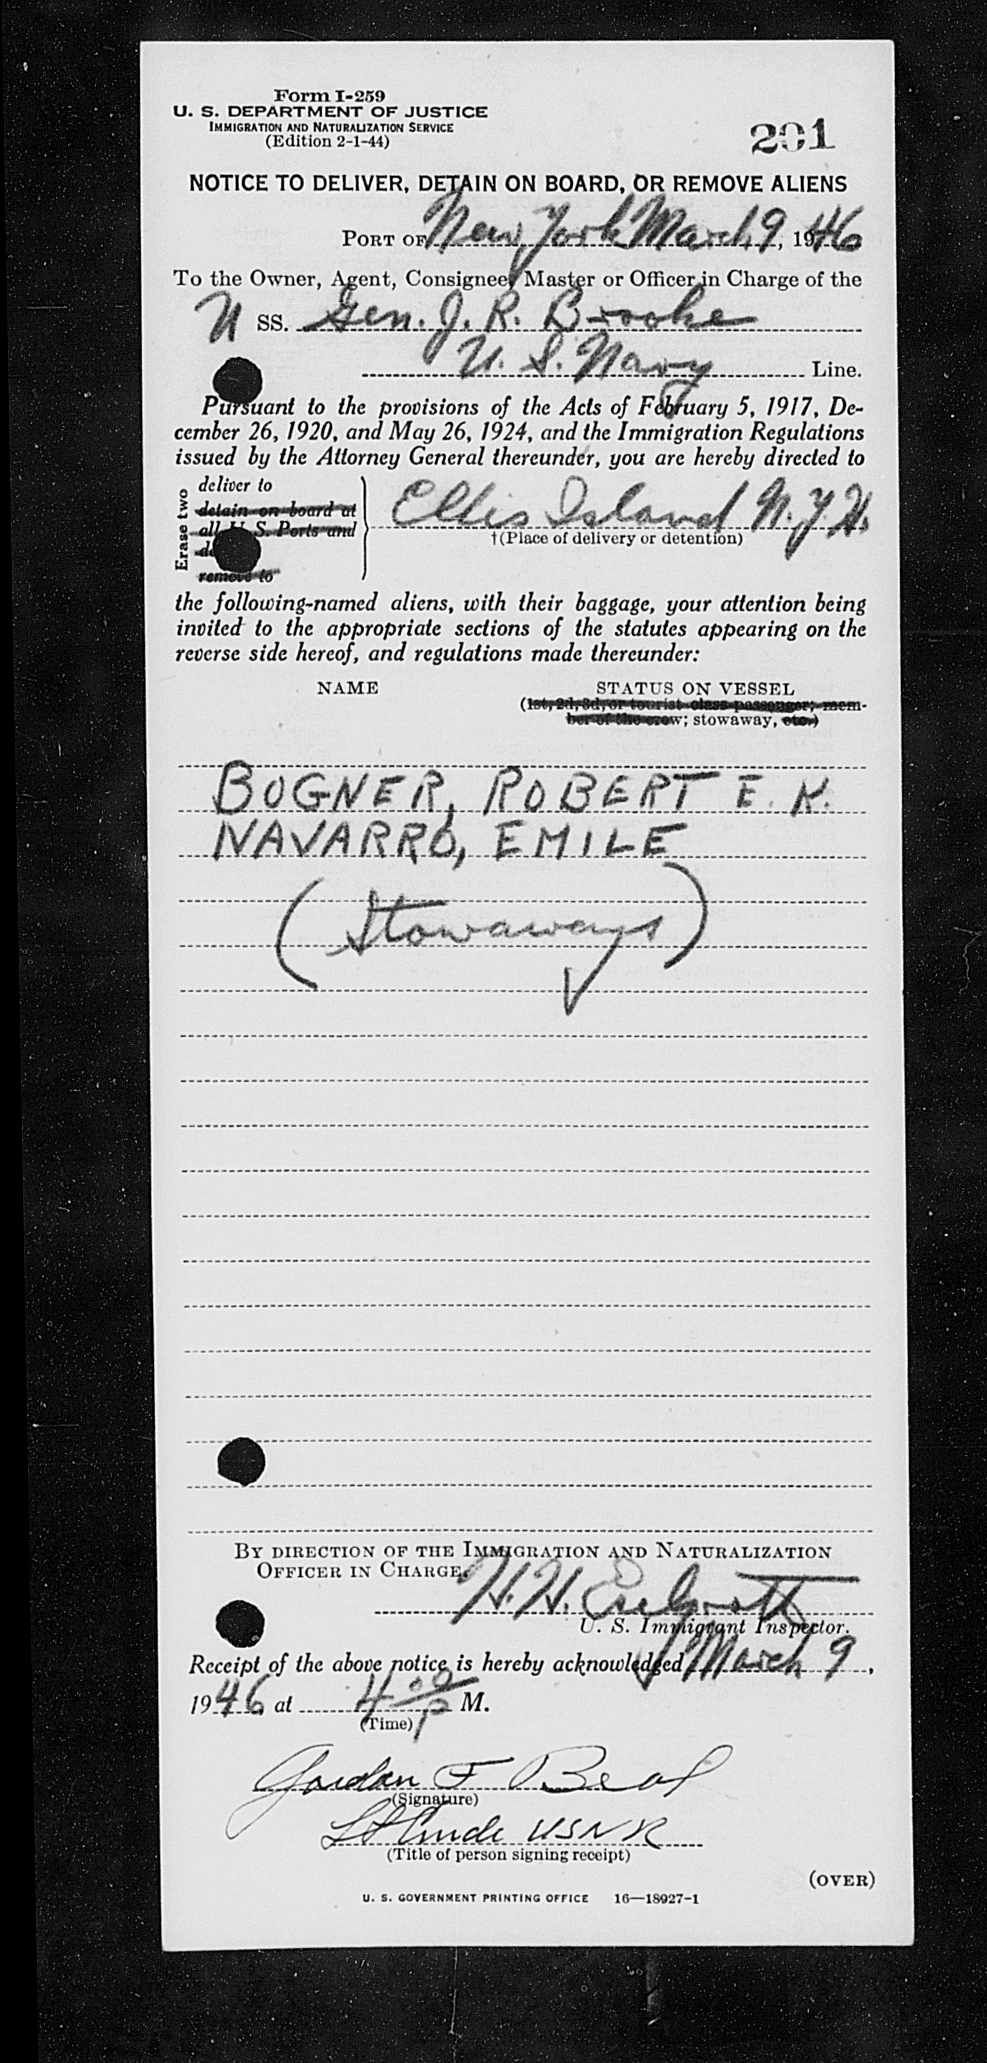 Form I-259
U. S. DEPARTMENT OF JUSTICE
IMMIGRATION AND NATURALIZATION SERVICE
(Edition 2-1-44)
201
NOTICE TO DELIVER, DETAIN ON BOARD, OR REMOVE ALIENS
PORT OF New York March 9, 1946
To the Owner, Agent, Consignee, Master or Officer in Charge of the
U SS. Gen. J. R. Brooke
U. S. Navy Line.
Pursuant to the provisions of the Acts of February 5, 1917, De-
cember 26, 1920, and May 26, 1924, and the Immigration Regulations
issued by the Attorney General thereunder, you are hereby directed to
Erase two
deliver to
detain on board at
all U. S. Ports and
remove to
Ellis Island N.Y.H.
†(Place of delivery or detention)
the following-named aliens, with their baggage, your attention being
invited to the appropriate sections of the statutes appearing on the
reverse side hereof, and regulations made thereunder:
NAME STATUS ON VESSEL
(1st, 2d, 3d, or tourist class passenger; mem-
ber of the crew; stowaway, etc.)
BOGNER, ROBERT E. K.
NAVARRO, EMILE
(Stowaways)
BY DIRECTION OF THE IMMIGRATION AND NATURALIZATION
OFFICER IN CHARGE.
H. H.
U. S. Immigrant Inspector.
Receipt of the above notice is hereby acknowledged March 9,
1946 at 4 00 P M.
(Time)
Gordon F Beal
(Signature)
Lt Cmdr USNR
(Title of person signing receipt)
(OVER)
U. S. GOVERNMENT PRINTING OFFICE 16—18927-1